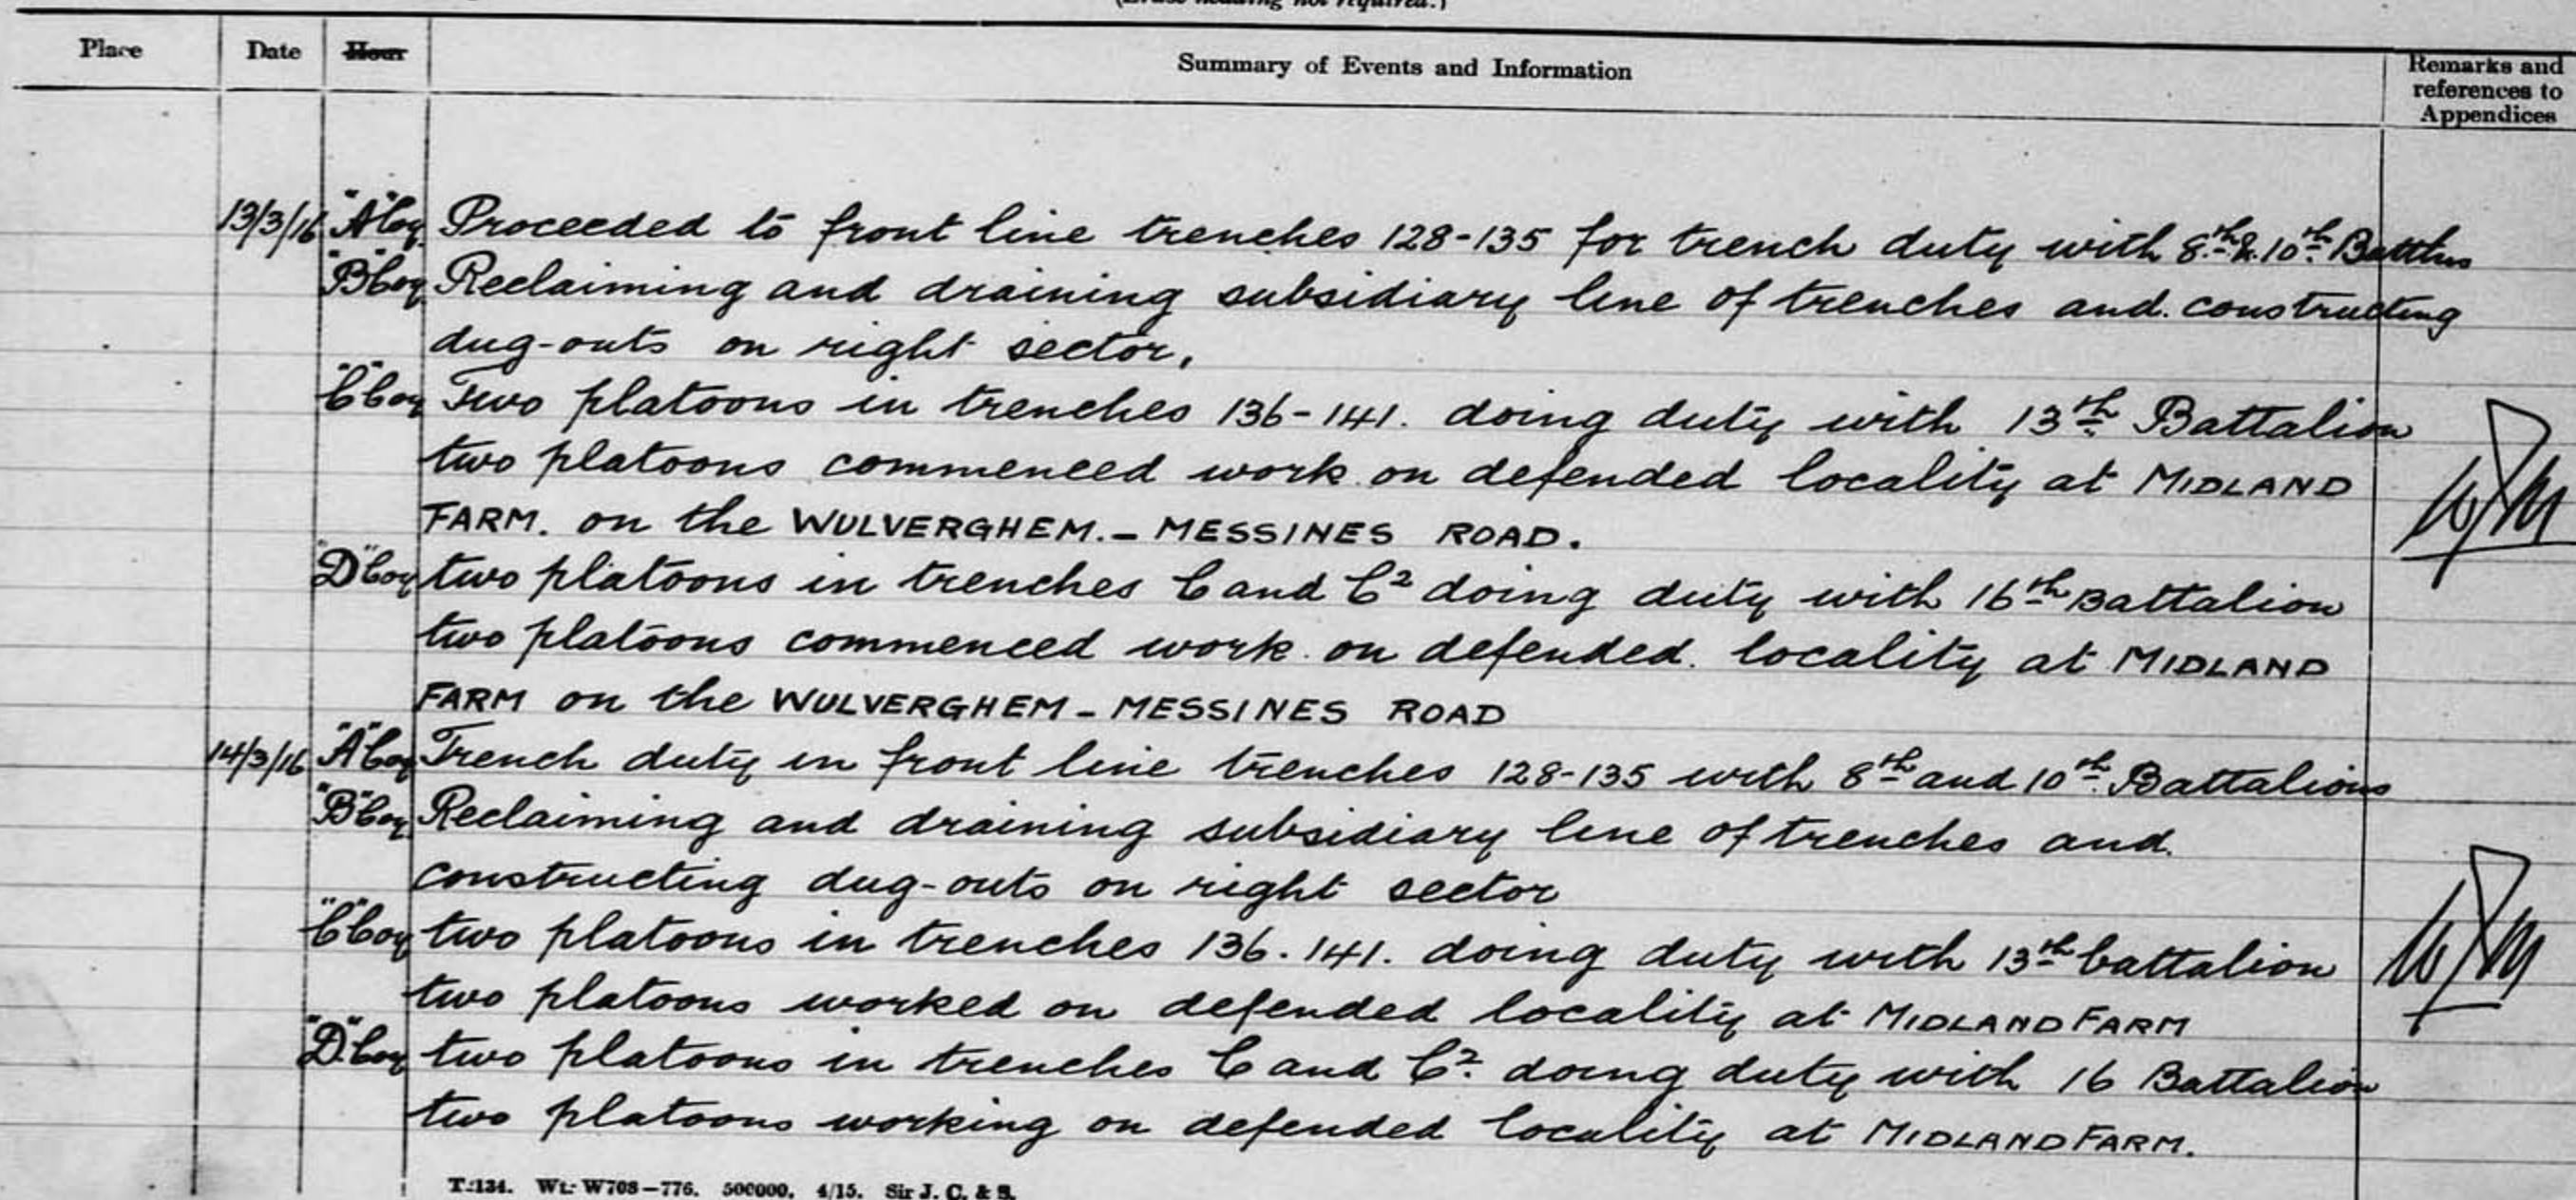 Place Date Hour Summary of Events and Information Remarks and references to Appendices
13/3/16 "A" Coy Proceeded to front line trenches 128-135 for trench duty with 8th & 10th Battlns
"B" Coy Reclaiming and draining subsidiary line of trenches and. constructing
dug-outs on right sector.
"C" Coy Two platoons in trenches 136-141. doing duty with 13th Battalion
two platoons commenced work on defended locality at MIDLAND
FARM. on the WULVERGHEM. - MESSINES ROAD.
"D" Coy two platoons in trenches C and C2 doing duty with 16th Battalion
two platoons commenced work on defended. locality at MIDLAND
FARM on the WULVERGHEM - MESSINES ROAD
14/3/16 "A" Coy Trench duty in front line trenches 128-135 with 8th and 10th Battalions
"B" Coy Reclaiming and draining subsidiary line of trenches and.
constructing dug-outs on right sector
"C" Coy two platoons in trenches 136.141. doing duty with 13th battalion
two platoons worked on defended locality at MIDLAND FARM
"D" Coy two platoons in trenches C and C2. doing duty with 16 Battalion
two platoons working on defended locality at MIDLAND FARM.
T.134. Wt. W708-776. 500000. 4/15. Sir J. C. & S.